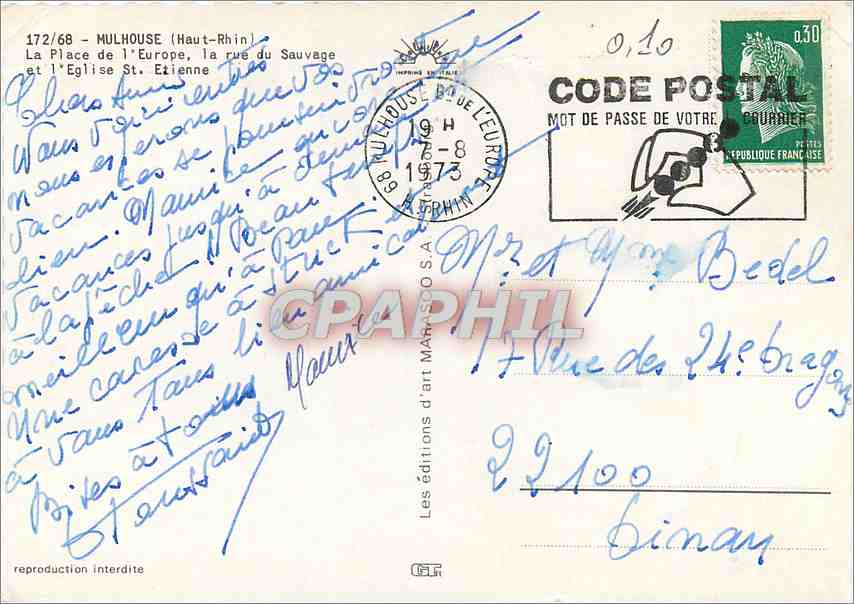 172/68 - MULHOUSE (Haut-Rhin)
La Place de l'Europe, la rue du Sauvage
et l'Eglise St. Etienne
IMPRIMÉ EN ITALIE
Chers Amis
nous espérons que vos
vacances se poursuivront
bien. Maurice encore en
vacances jusqu'à
à la pêche !! Beau temps
meilleur qu'à Paris
Une caresse à
à vous tous bien amical
Bises à tous
Maurice
Toussaint
reproduction interdite
Les éditions d'art MARASCO S.A. Strasbourg
68 MULHOUSE Bd DE L'EUROPE
19 H
7-8
1973
H. RHIN
0,10
CODE POSTAL
MOT DE PASSE DE VOTRE COURRIER
0,30
POSTES
REPUBLIQUE FRANÇAISE
Mr et Mme Bedel
17 Rue des 24e dragons
22100
Dinan
CPAPHIL